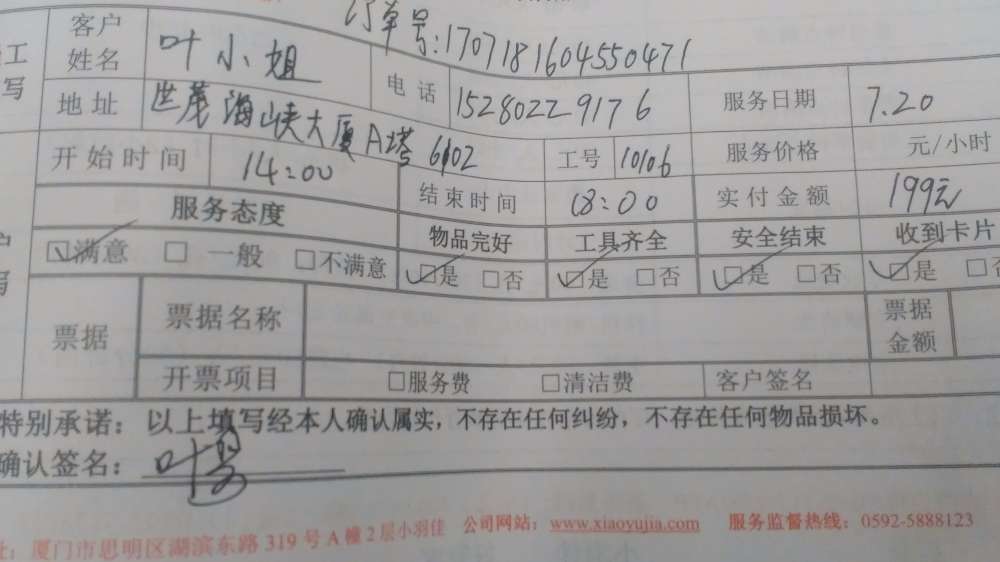 订单号:1707181604550471
工 客户姓名 叶小姐 电话 15280229176 服务日期 7.20
写 地址 世茂海峡大厦A塔6102 工号 10106 服务价格 元/小时
开始时间 14:00 结束时间 18:00 实付金额 199元
服务态度 物品完好 工具齐全 安全结束 收到卡片
☑满意 □一般 □不满意 ☑是 □否 ☑是 □否 ☑是 □否 ☑是 □否
票据 票据名称 票据金额
开票项目 □服务费 □清洁费 客户签名
特别承诺：以上填写经本人确认属实，不存在任何纠纷，不存在任何物品损坏。
确认签名：叶
址：厦门市思明区湖滨东路319号A幢2层小羽佳 公司网站：www.xiaoyujia.com 服务监督热线：0592-5888123